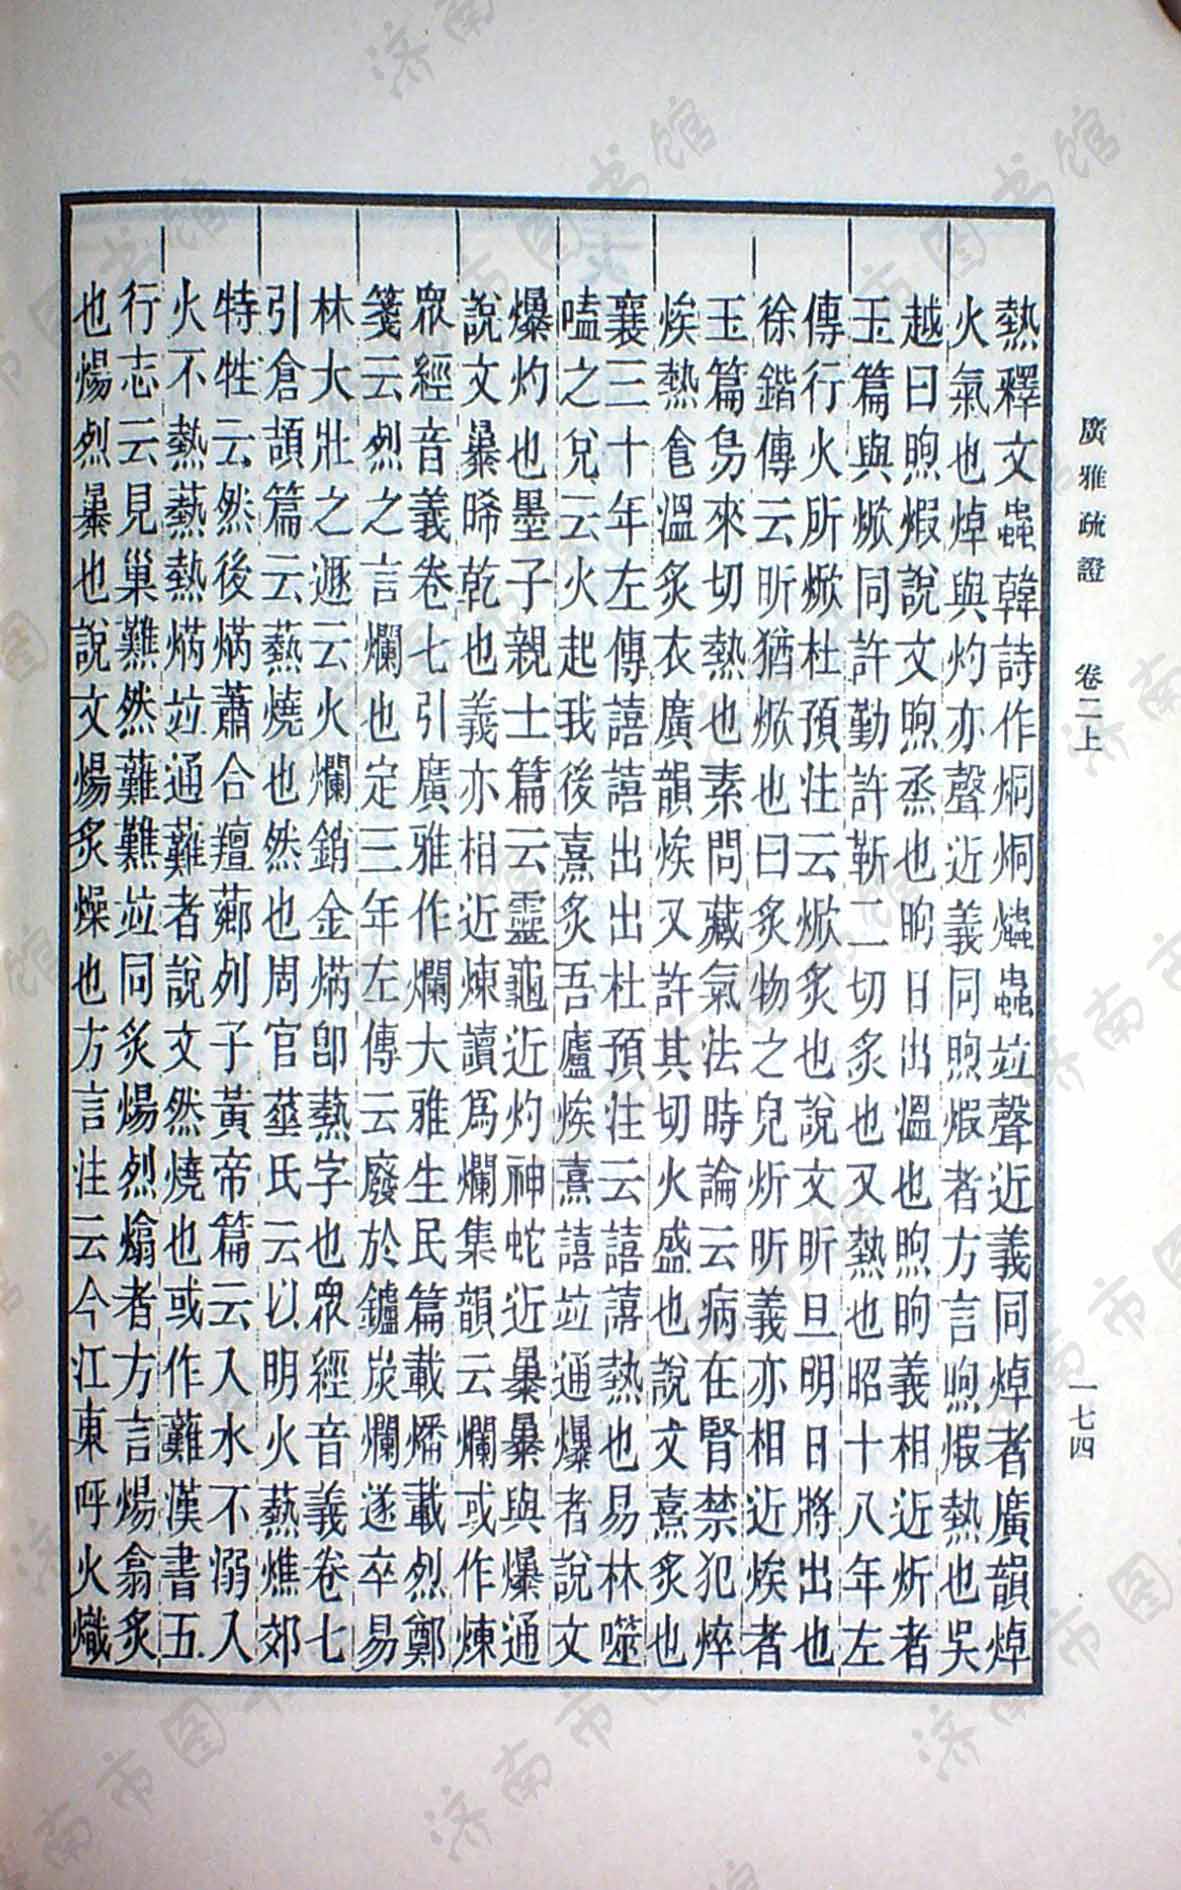 熱釋文蟲韓詩作烔烔爞蟲竝聲近義同焯者廣韻焯
火氣也焯與灼亦聲近義同煦煆者方言煦煆熱也吳
越曰煦煆說文煦烝也昫日出溫也煦昫義相近炘者
玉篇與焮同許勤許靳二切炙也又熱也昭十八年左
傳行火所焮杜預注云焮炙也說文昕旦明日將出也
徐鍇傳云昕猶焮也日炙物之皃炘昕義亦相近㶼者
玉篇烏來切熱也素問藏氣法時論云病在腎禁犯焠
㶼熱食溫炙衣廣韻㶼又許其切火盛也說文熹炙也
襄三十年左傳譆譆出出杜預注云譆譆熱也易林噬
嗑之兌云火起我後熹炙吾廬㶼熹譆竝通爆者說文
爆灼也墨子親士篇云靈龜近灼神蛇近暴暴與爆通
說文暴晞乾也義亦相近煉讀爲爛集韻云爛或作煉
眾經音義卷七引廣雅作爛大雅生民篇載燔載烈鄭
箋云烈之言爛也定三年左傳云廢於鑪炭爛遂卒易
林大壯之遯云火爛銷金焫卽爇字也眾經音義卷七
引倉頡篇云爇燒也然也周官菙氏云以明火爇燋郊
特牲云然後焫蕭合羶薌列子黃帝篇云入水不溺入
火不熱爇熱焫竝通難者說文然燒也或作蘸漢書五
行志云見巢難然難難竝同炙煬烈熻者方言煬翕炙
也煬烈暴也說文煬炙燥也方言注云今江東呼火熾
廣雅疏證 卷二上 一七四
濟南市图书馆